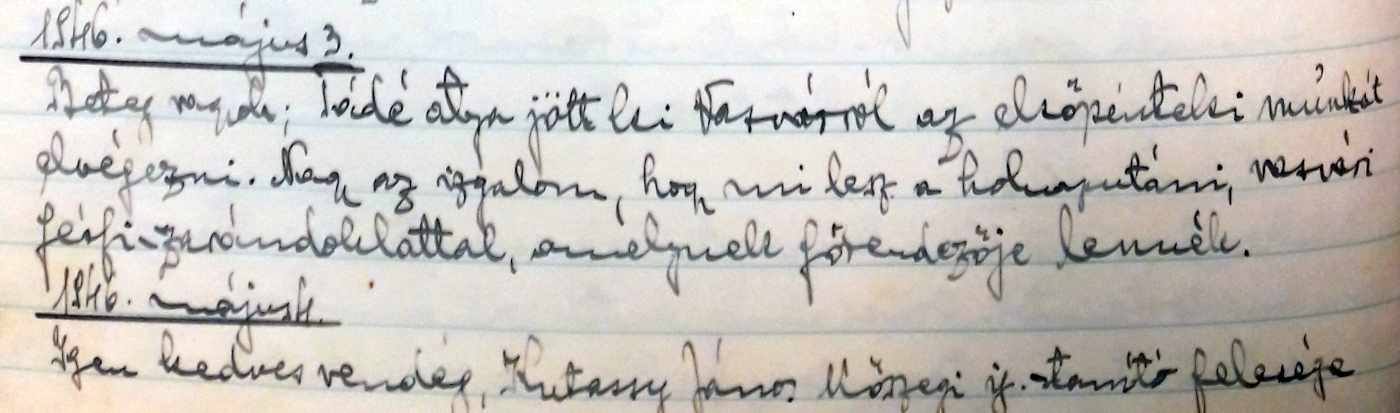 1946. május 3.
Beteg vagyok; Tádé atya jött ki Vasvárról az elsőpénteki munkát
elvégezni. Nagy az izgalom, hogy mi lesz a holnaputáni, vasvári
férfi-zarándoklattal, amelynek főrendezője lennék.
1946. május 4.
Igen kedves vendég, Kutassy János kőszegi tanító felesége